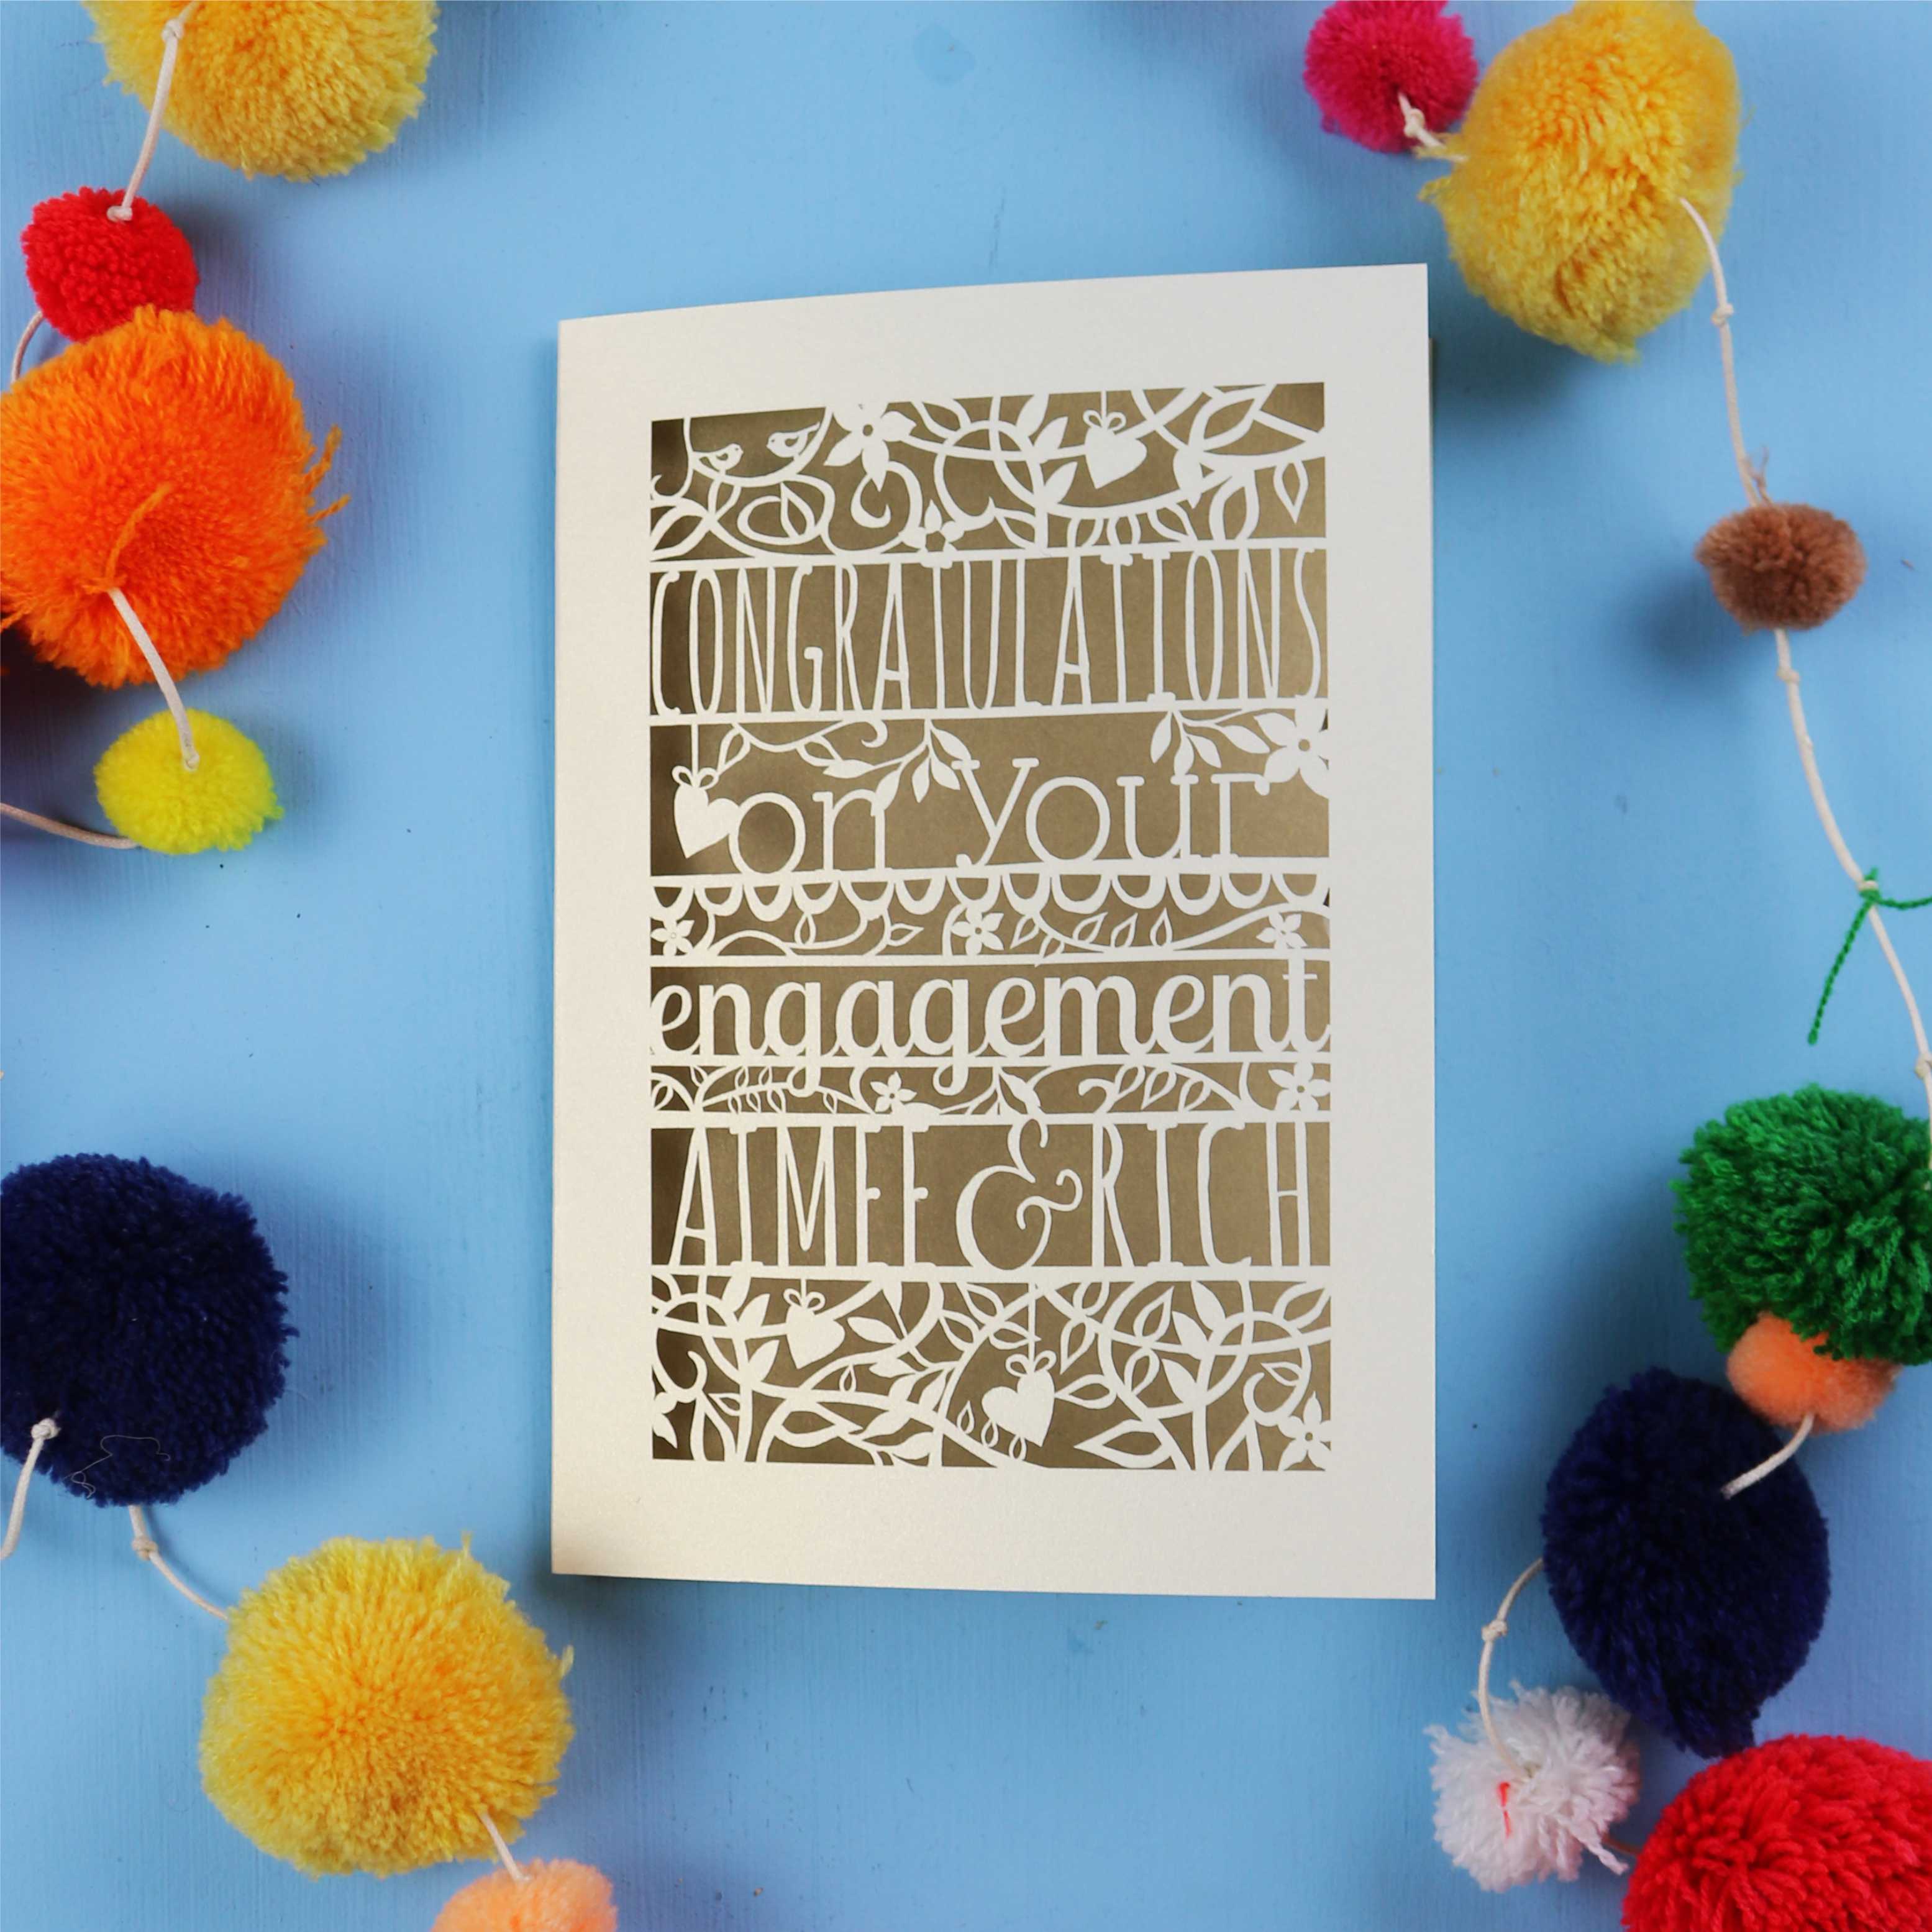 CONGRATULATIONS
on your
engagement
AIMEE & RICH